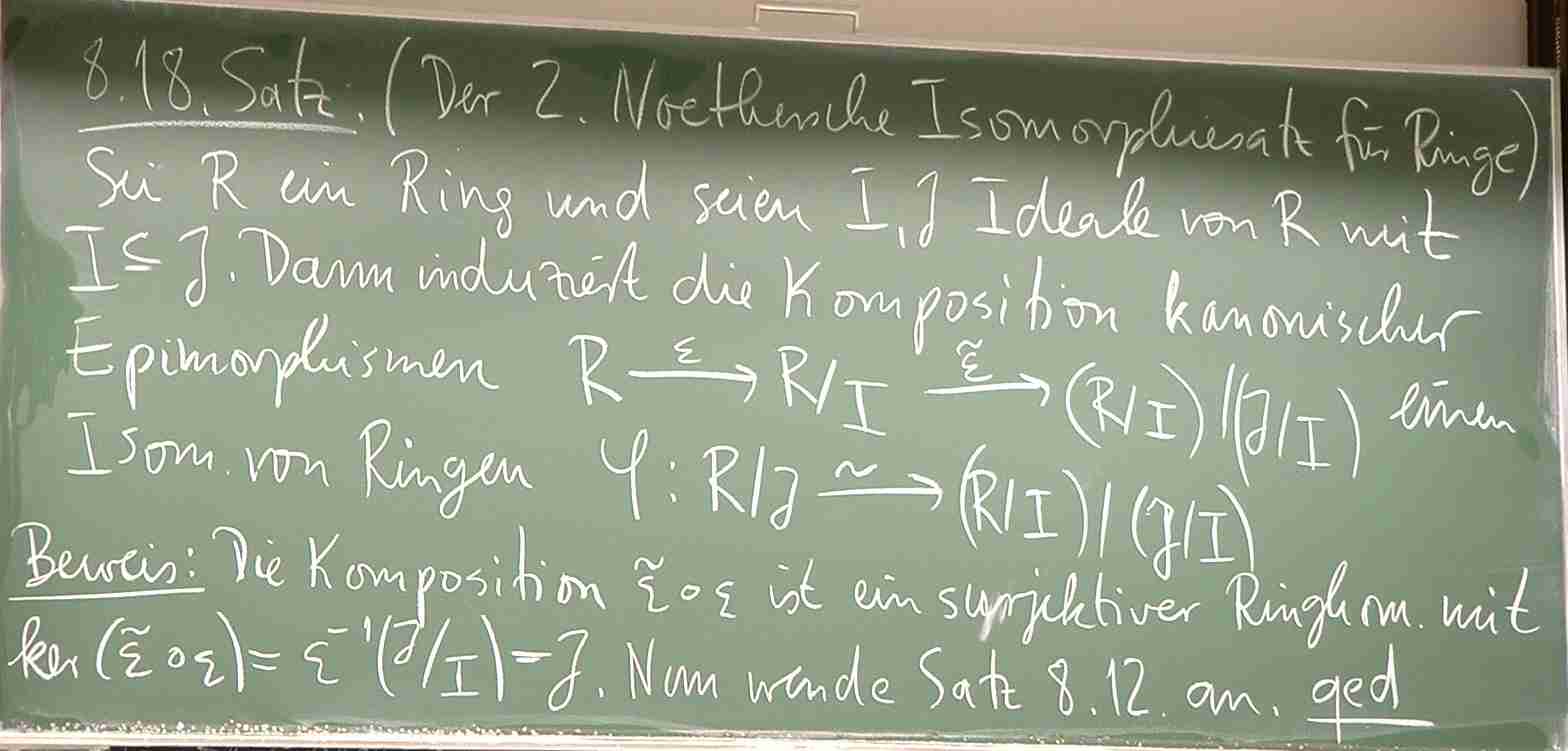 8.18. Satz. (Der 2. Noethersche Isomorphiesatz für Ringe)
Sei R ein Ring und seien I, J Ideale von R mit
I ⊆ J. Dann induziert die Komposition kanonischer
Epimorphismen R —ε→ R/I —ε̃→ (R/I)/(J/I) einen
Isom. von Ringen φ: R/J —~→ (R/I)/(J/I)
Beweis: Die Komposition ε̃∘ε ist ein surjektiver Ringhom. mit
ker(ε̃∘ε) = ε⁻¹(J/I) = J. Nun wende Satz 8.12. an. qed